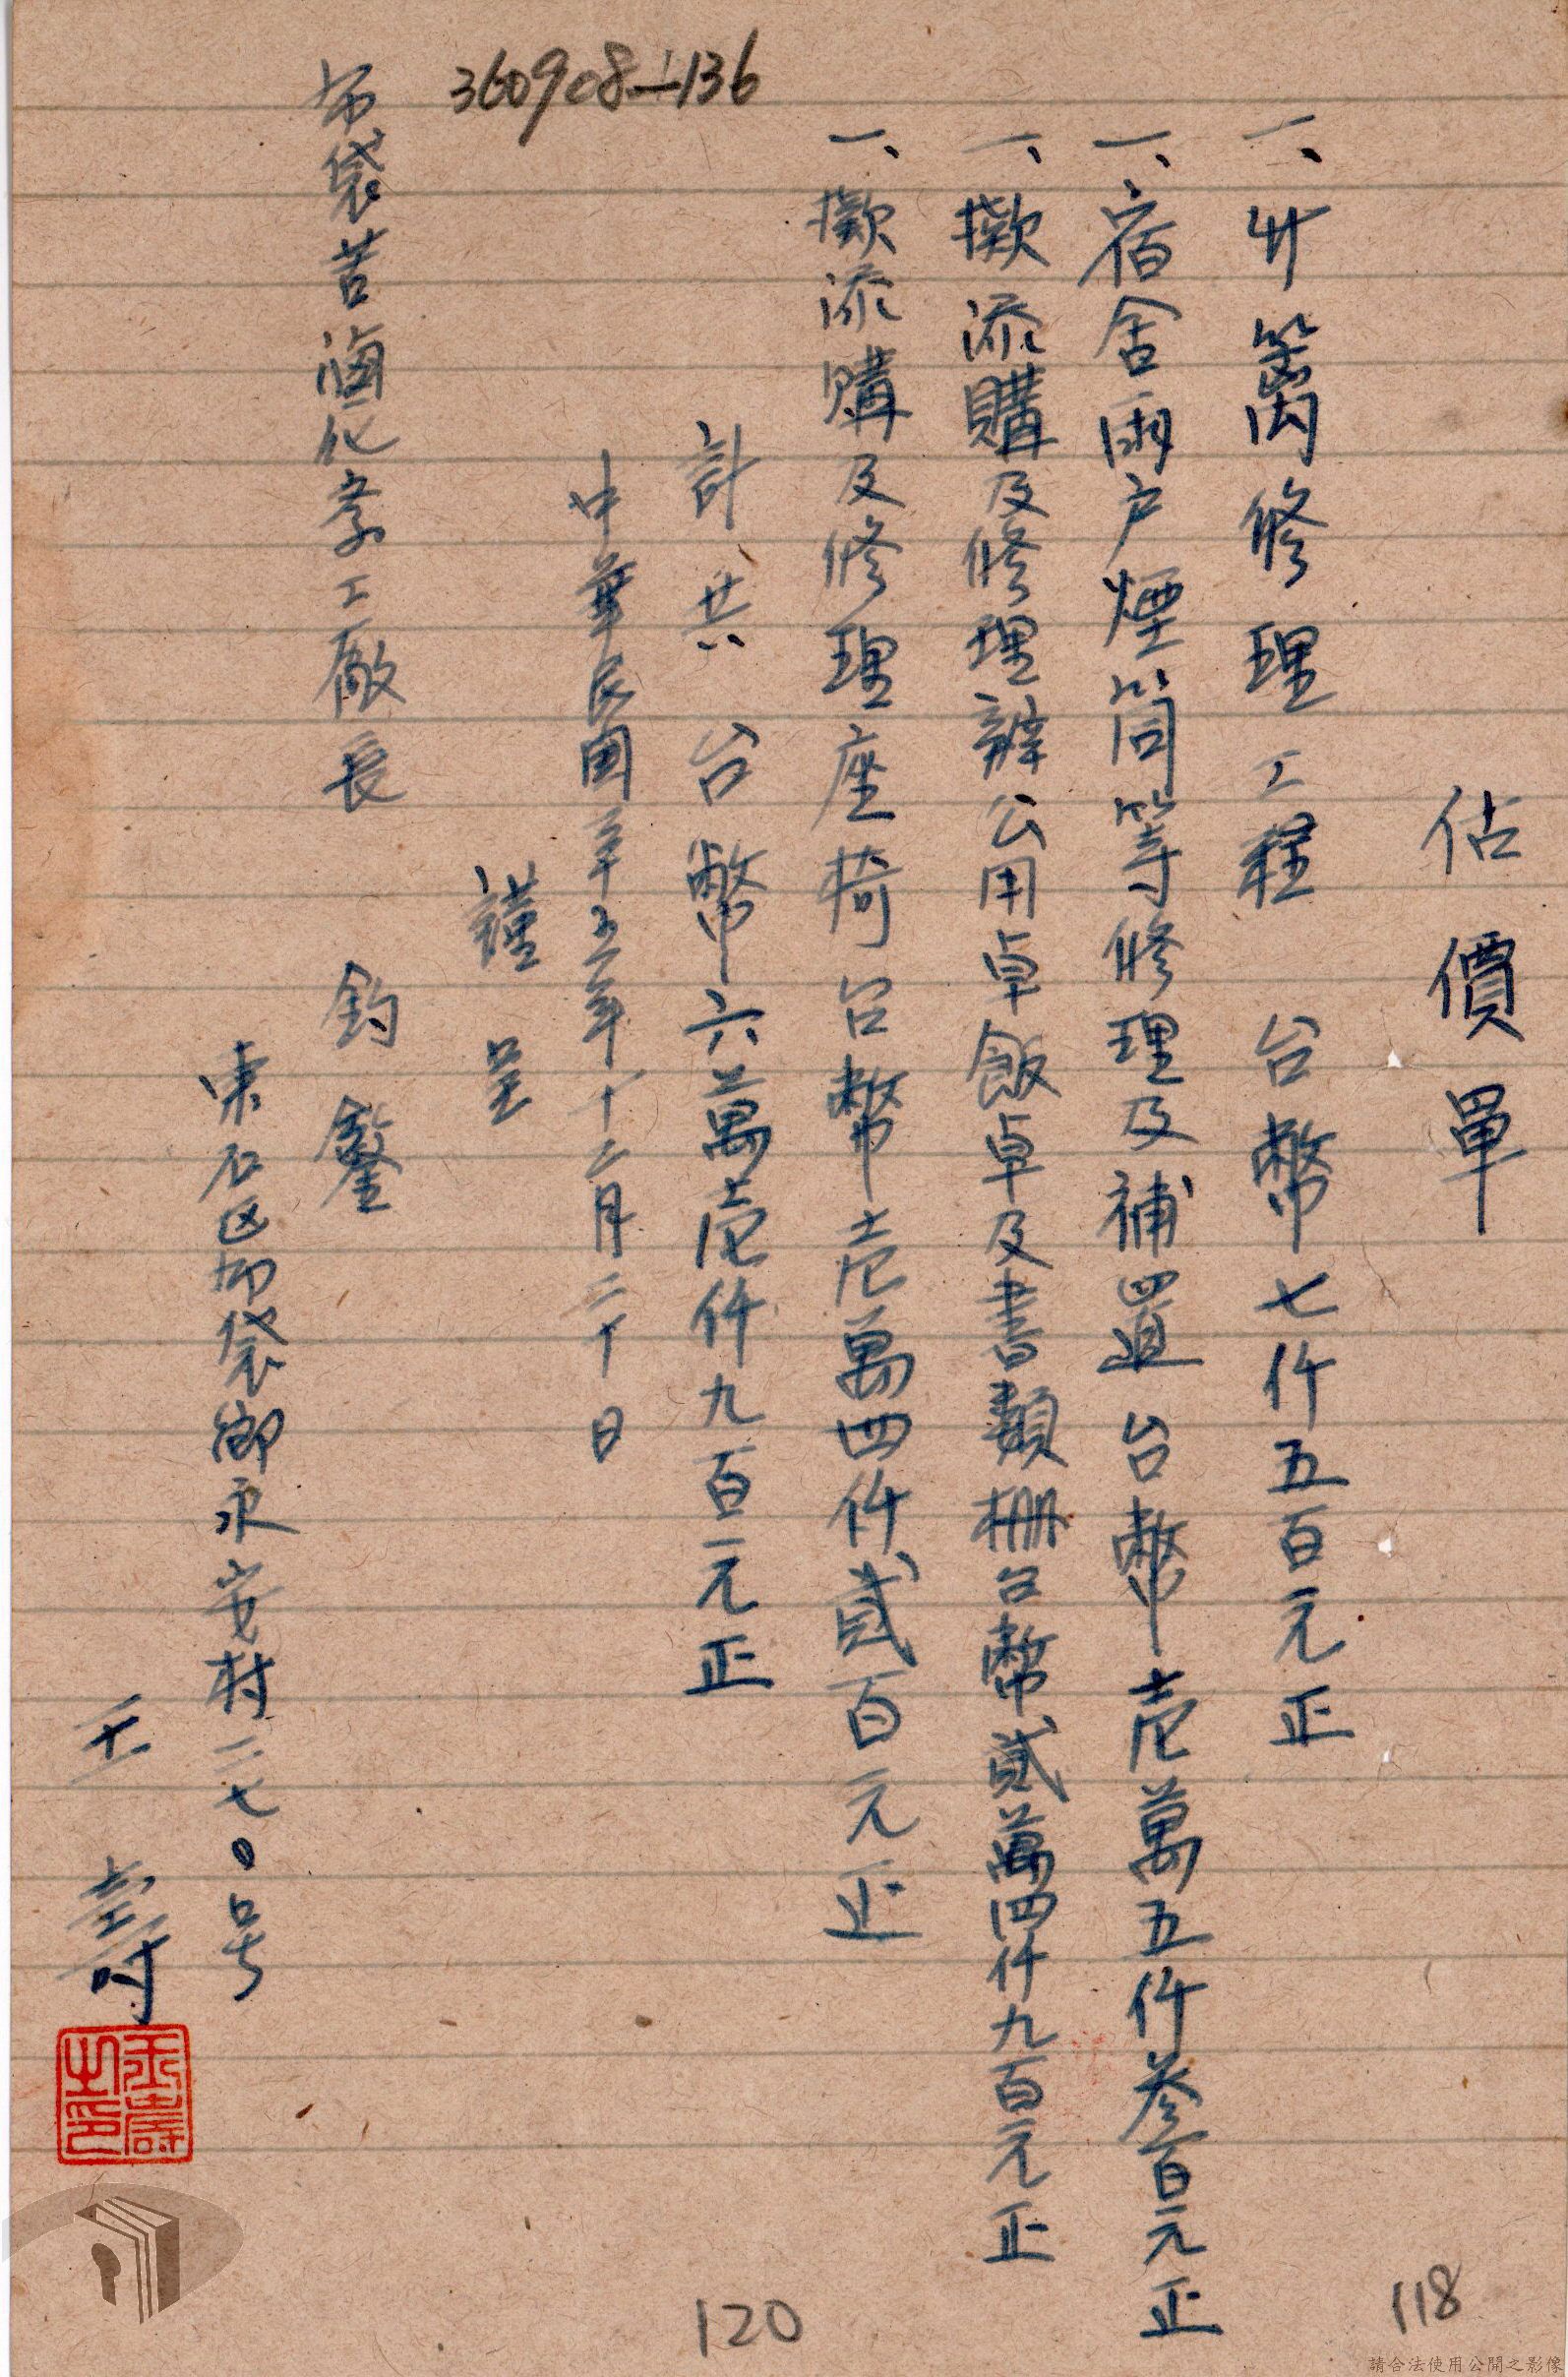 估價單
一、竹篱修理工程 台幣七仟五百元正
一、宿舍雨户煙筒等修理及補置台幣壱萬五仟叁百元正
一、擬添購及修理辦公用卓飯卓及書類棚台幣貳萬四仟九百元正
一、擬添購及修理座椅台幣壱萬四仟貳百元正
計共 台幣六萬壱仟九百元正
中華民国三十五年十二月二十日
謹呈
布袋苦滷化学工廠長 鈞鑒
東石区布袋鄉永安村二七0号
王壽
王壽之印
360908-136
120
118
請合法使用公開之影像